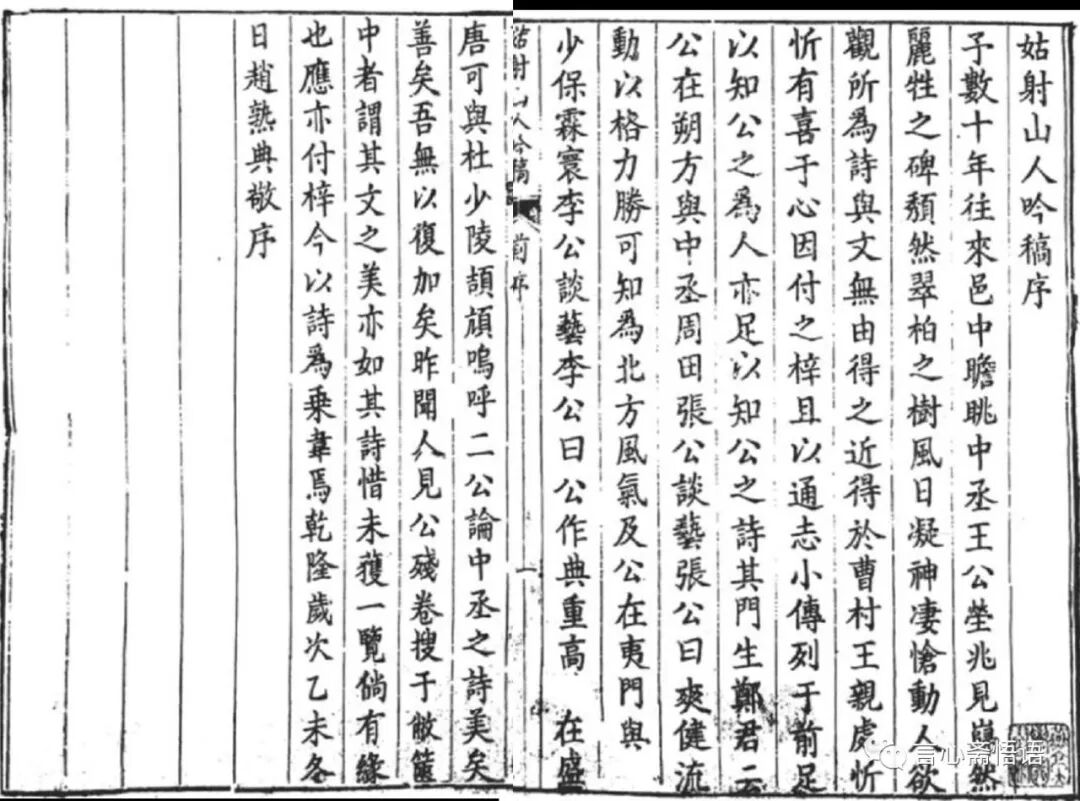 姑射山人吟稿序
予數十年往來邑中瞻眺中丞王公塋兆見巋然
麗牲之碑頽然翠柏之樹風日凝神凄愴動人欲
觀所爲詩與文無由得之近得於曹村王親處忻
忻有喜于心因付之梓且以通志小傳列于前足
以知公之爲人亦足以知公之詩其門生鄭君云
公在朔方與中丞周田張公談藝張公曰爽健流
動以格力勝可知爲北方風氣及公在夷門與
少保霖寰李公談藝李公曰公作典重高 在盛
姑射山人吟稿 前序 一
唐可與杜少陵頡頏嗚呼二公論中丞之詩美矣
善矣吾無以復加矣昨聞人見公殘卷搜于敝篋
中者謂其文之美亦如其詩惜未獲一覽倘有緣
也應亦付梓今以詩爲乗韋焉乾隆歲次乙未冬
日趙熟典敬序
言心斋悟语